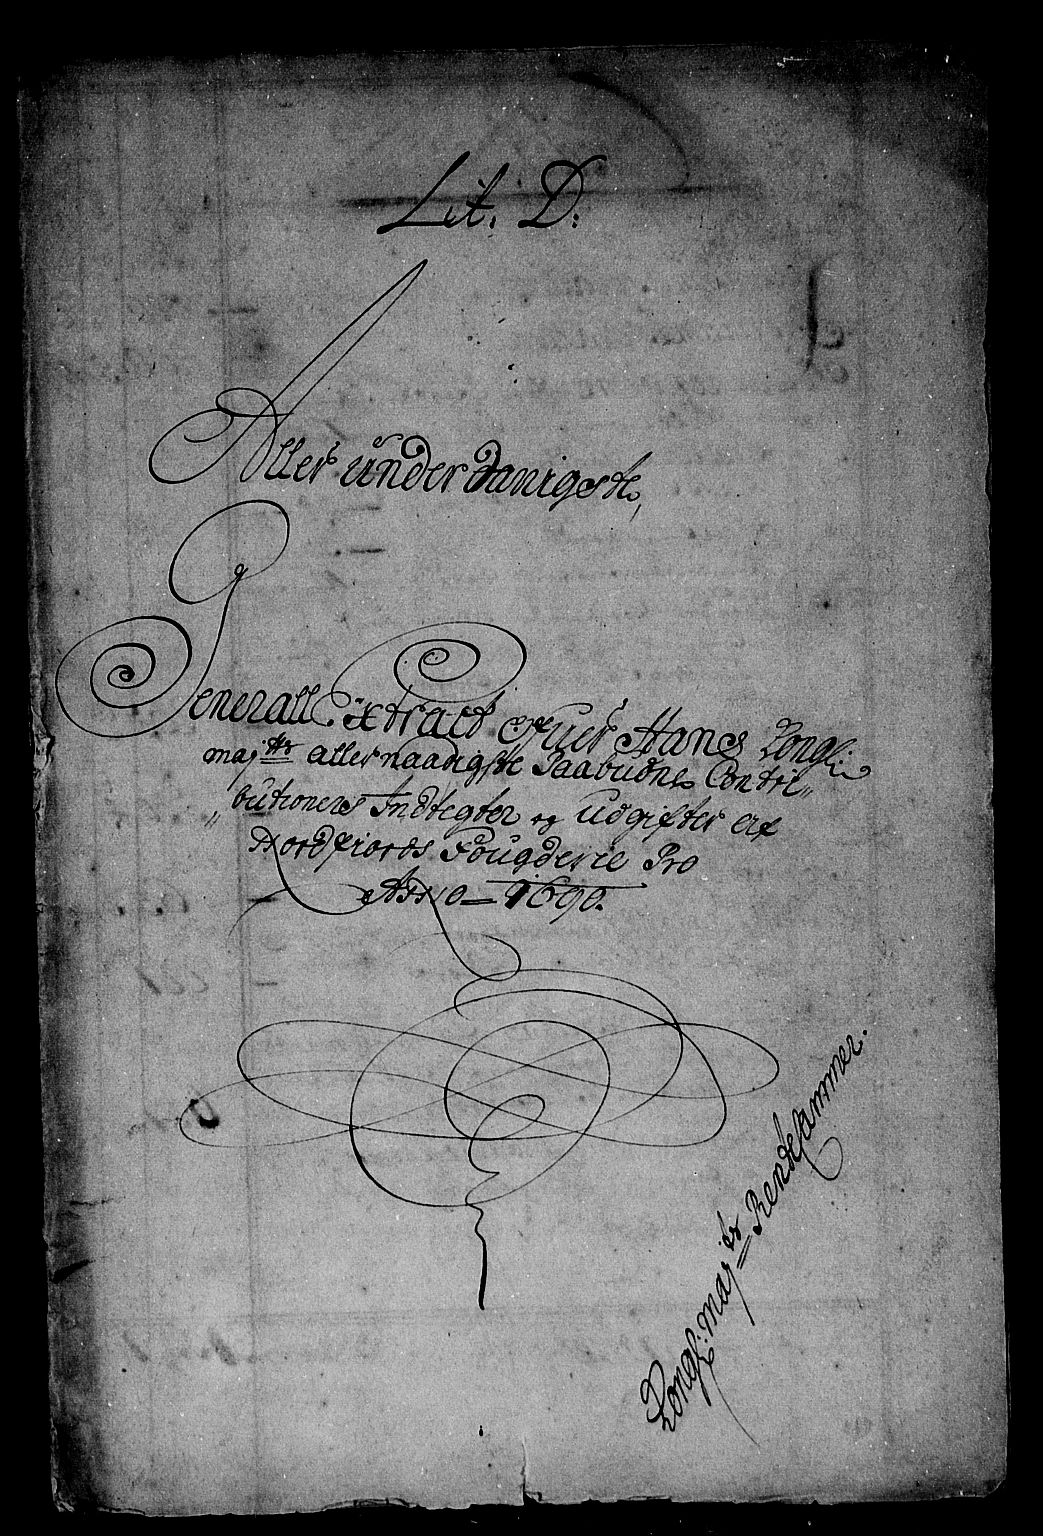 Lit. D:
Aller underdanigste,
Generall Extract ofuer Hans Kongl:
maj:ts aller naadigste Paabudne Contri„
„butioners Indtegter og Udgifter af
Nordfiords Fougderie Pro
Anno 1690.
Kongl: maj:ts Rendtekammer.